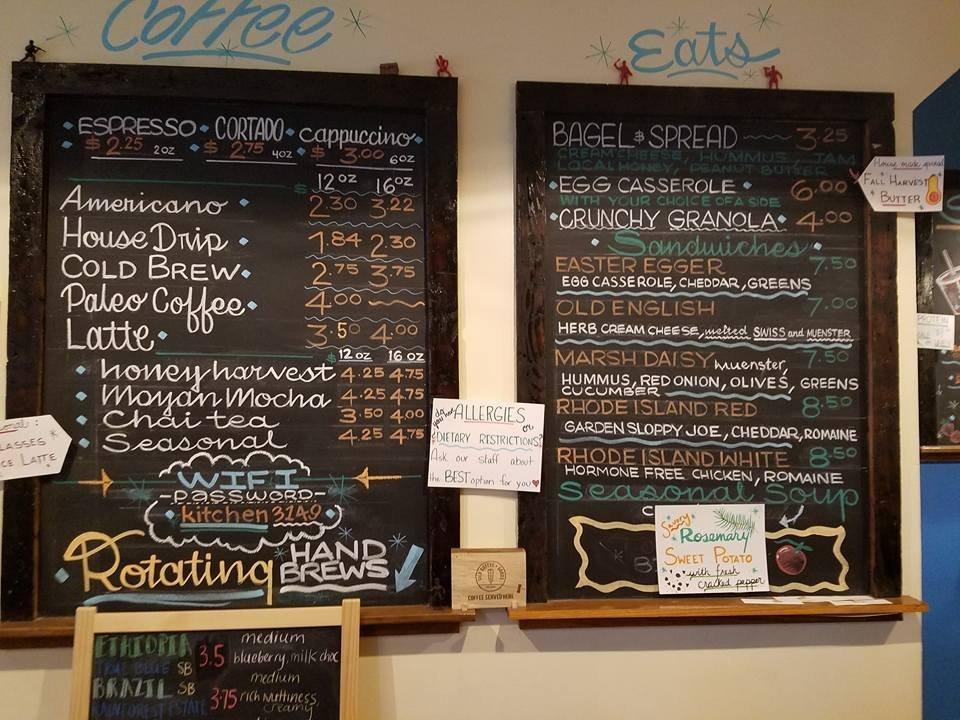 Coffee
ESPRESSO CORTADO cappuccino
$2.25 2oz $2.75 4oz $3.00 6oz
$ 12oz 16oz
Americano 2.30 3.22
House Drip 1.84 2.30
COLD BREW 2.75 3.75
Paleo Coffee 4.00
Latte 3.50 4.00
$ 12 oz 16 oz
honey harvest 4.25 4.75
Mayan Mocha 4.25 4.75
Chai tea 3.50 4.00
Seasonal 4.25 4.75
WIFI
-PASSWORD-
kitchen 3149
Rotating HAND
BREWS
ETHIOPIA medium
TRUE BLUE SB 3.5 blueberry, milk choc
BRAZIL SB medium
RAINFOREST ESTATE 3.75 rich nuttiness,
creamy
LASSES
CE LATTE
do you have ALLERGIES or
DIETARY RESTRICTIONS?
Ask our staff about
the BEST option for you
COFFEE SERVED HERE
Eats
BAGEL & SPREAD 3.25
CREAM CHEESE, HUMMUS, JAM
LOCAL HONEY, PEANUT BUTTER
EGG CASSEROLE 6.00
WITH YOUR CHOICE OF A SIDE
CRUNCHY GRANOLA 4.00
Sandwiches
EASTER EGGER 7.50
EGG CASSEROLE, CHEDDAR, GREENS
OLD ENGLISH 7.00
HERB CREAM CHEESE, melted SWISS and MUENSTER
MARSH DAISY muenster, 7.50
HUMMUS, RED ONION, OLIVES, GREENS
CUCUMBER
RHODE ISLAND RED 8.50
GARDEN SLOPPY JOE, CHEDDAR, ROMAINE
RHODE ISLAND WHITE 8.50
HORMONE FREE CHICKEN, ROMAINE
Seasonal Soup
Savory
Rosemary
SWEET POTATO
with fresh
cracked pepper
House made spread
FALL HARVEST
BUTTER
PROTEIN